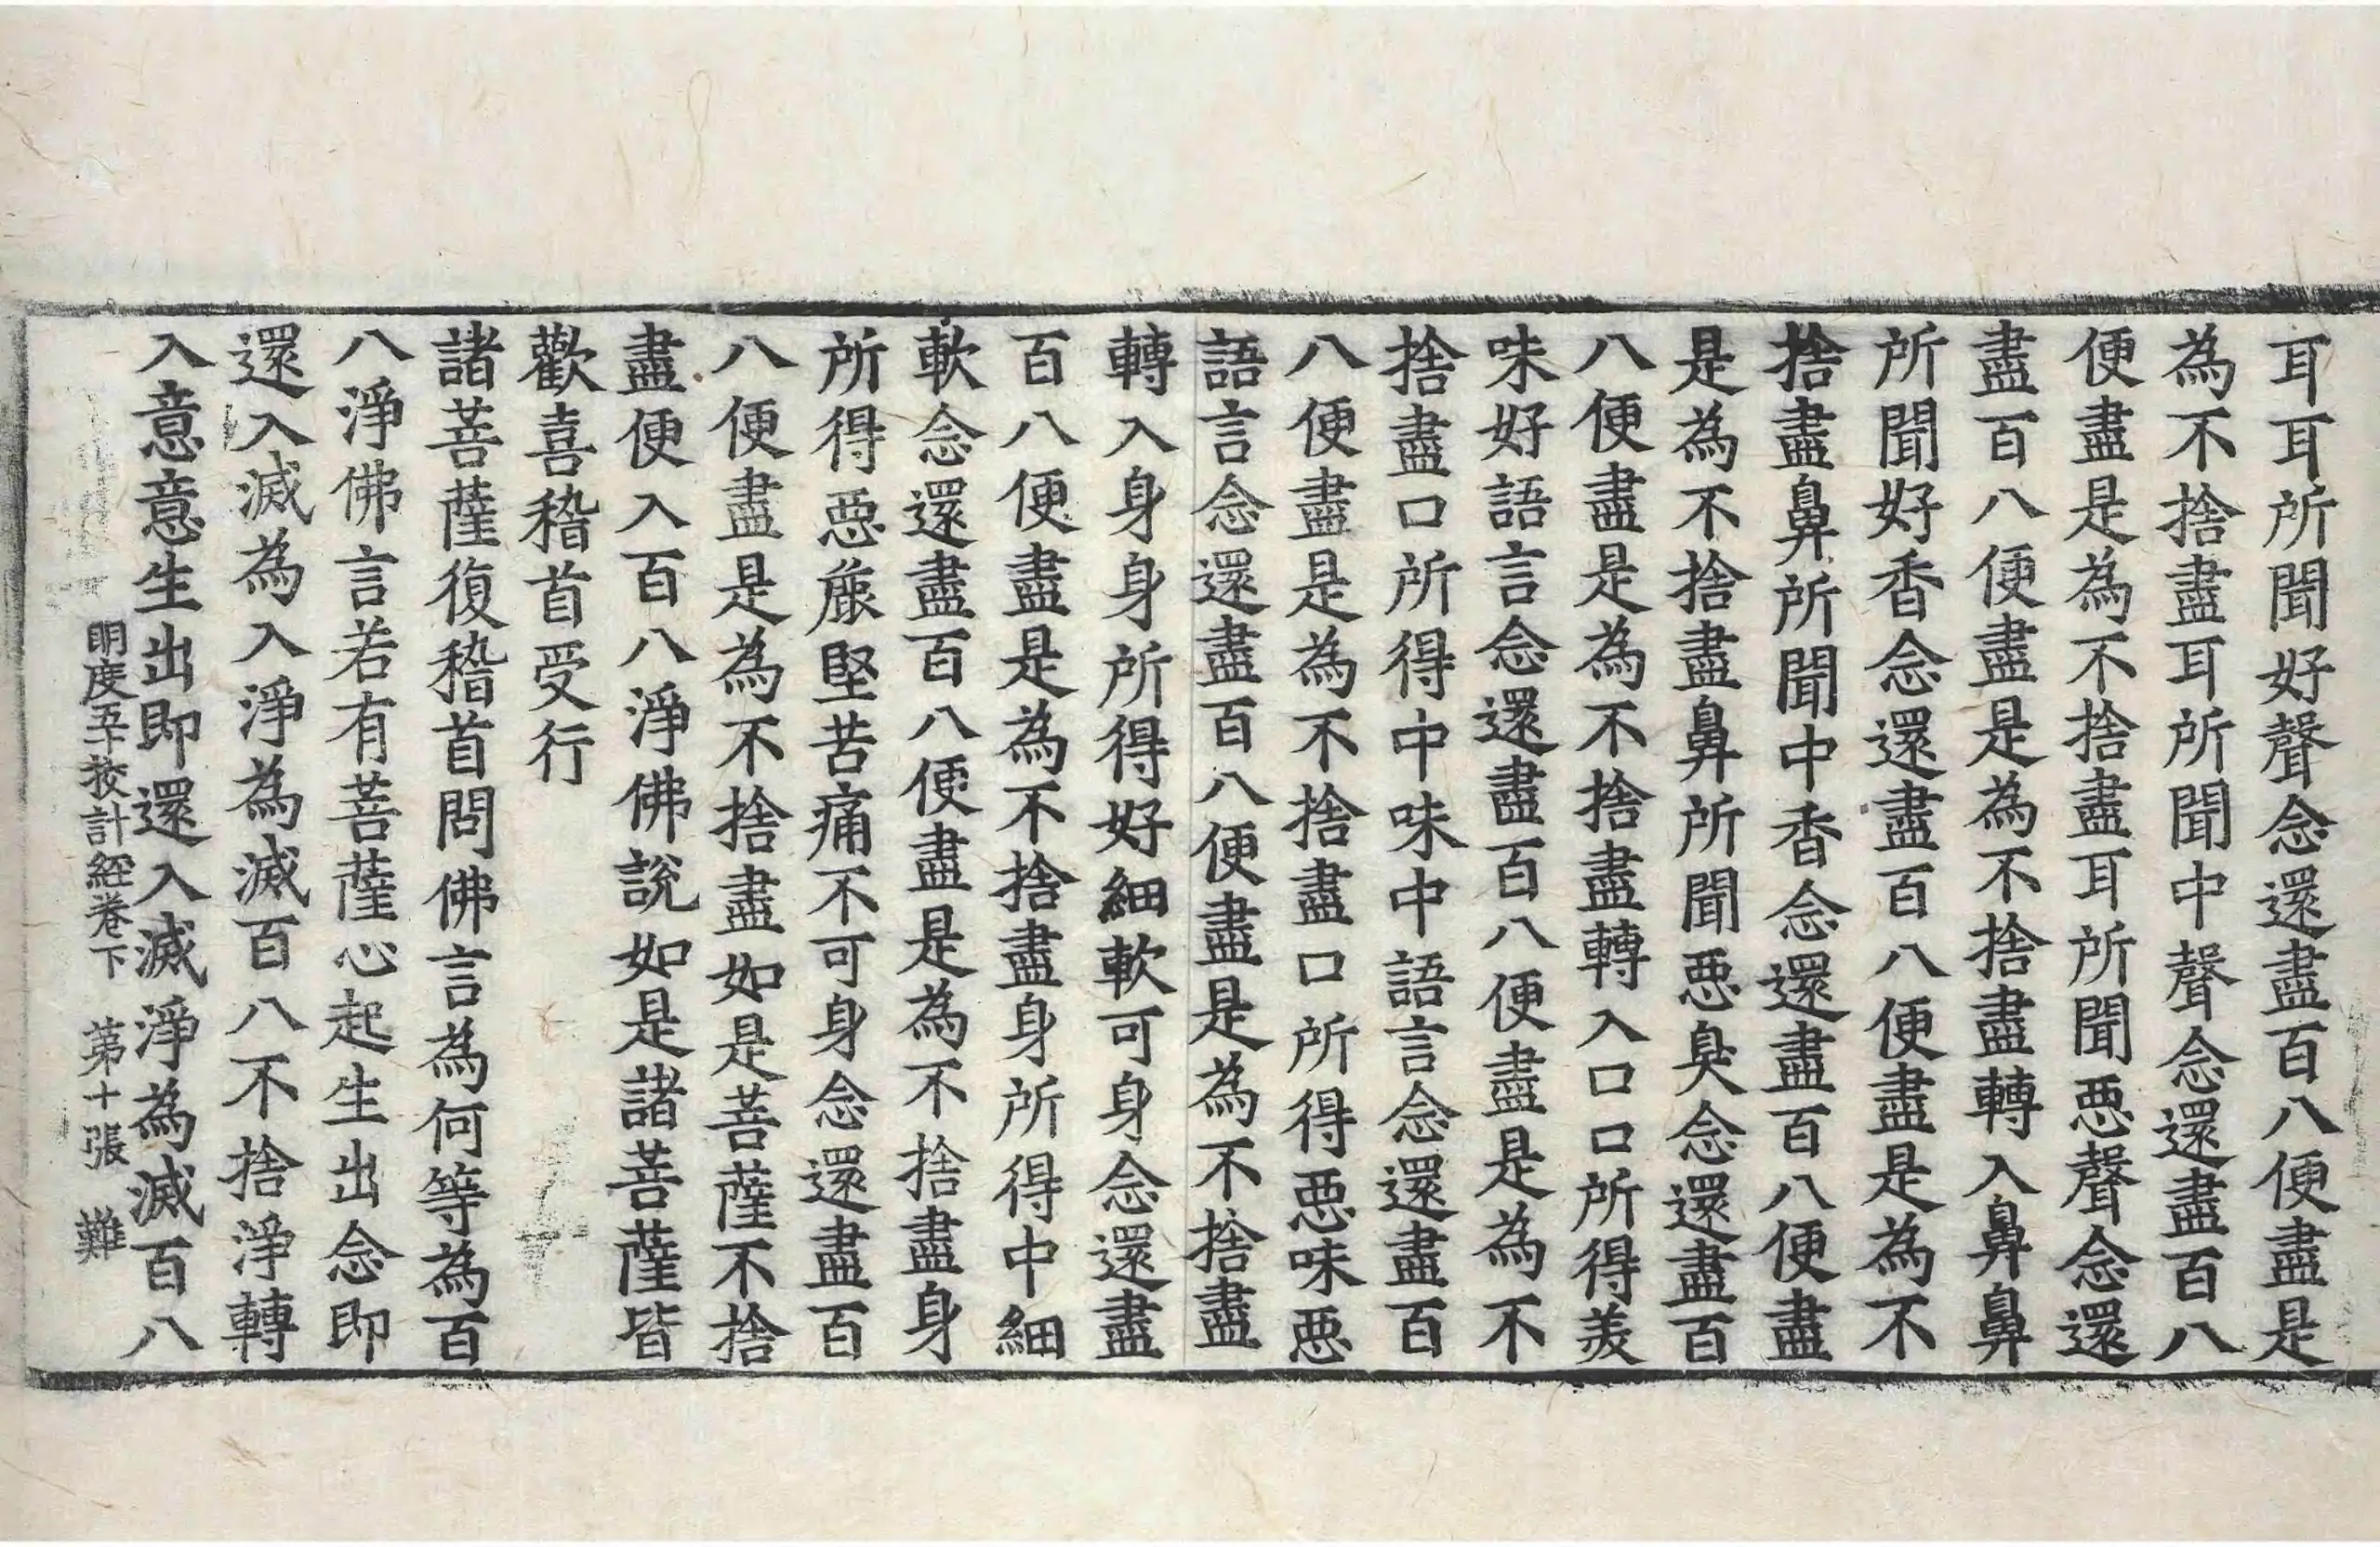 耳耳所聞好聲念還盡百八便盡是
為不捨盡耳所聞中聲念還盡百八
便盡是為不捨盡耳所聞惡聲念還
盡百八便盡是為不捨盡轉入鼻鼻
所聞好香念還盡百八便盡是為不
捨盡鼻所聞中香念還盡百八便盡
是為不捨盡鼻所聞惡臭念還盡百
八便盡是為不捨盡轉入口口所得美
味好語言念還盡百八便盡是為不
捨盡口所得中味中語言念還盡百
八便盡是為不捨盡口所得惡味惡
語言念還盡百八便盡是為不捨盡
轉入身身所得好細軟可身念還盡
百八便盡是為不捨盡身所得中細
軟念還盡百八便盡是為不捨盡身
所得惡麁堅苦痛不可身念還盡百
八便盡是為不捨盡如是菩薩不捨
盡便入百八淨佛說如是諸菩薩皆
歡喜稽首受行
諸菩薩復稽首問佛言為何等為百
八淨佛言若有菩薩心起生出念即
還入滅為入淨為滅百八不捨淨轉
入意意生出即還入滅淨為滅百八
明度五十挍計經卷下 第十張 難